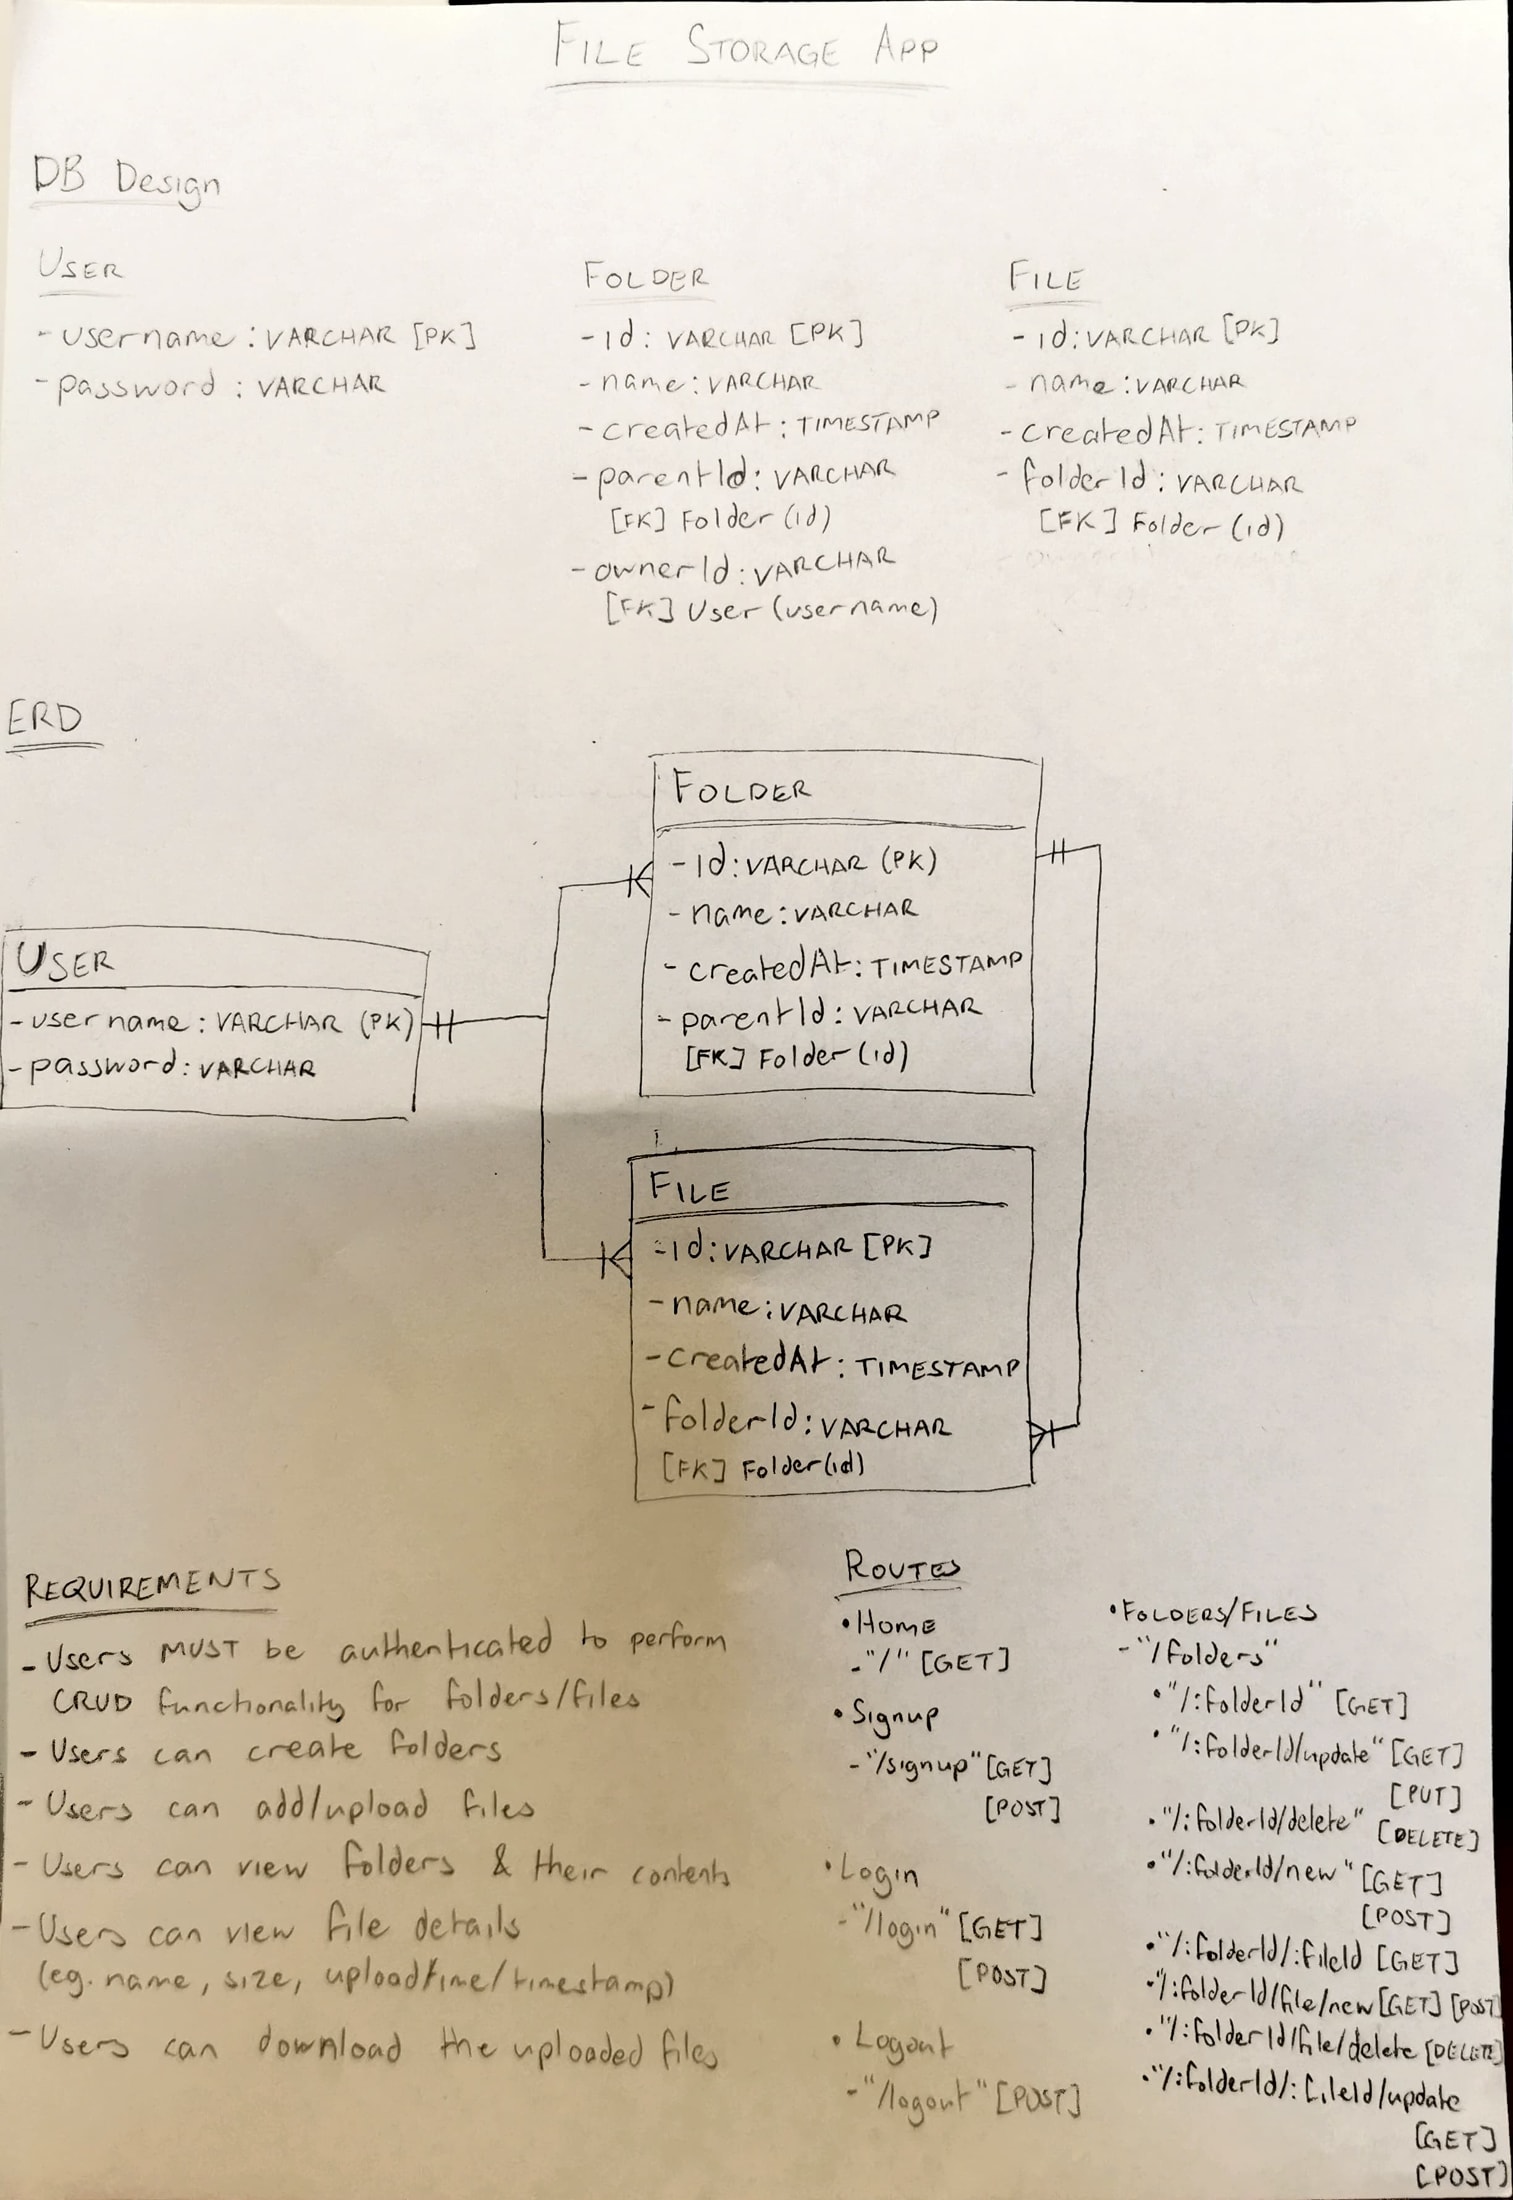 FILE STORAGE APP
DB Design
USER
- username : VARCHAR [PK]
- password : VARCHAR
FOLDER
- id : VARCHAR [PK]
- name : VARCHAR
- createdAt : TIMESTAMP
- parentId : VARCHAR
[FK] Folder (id)
- ownerId : VARCHAR
[FK] User (username)
FILE
- id : VARCHAR [PK]
- name : VARCHAR
- createdAt : TIMESTAMP
- folderId : VARCHAR
[FK] Folder (id)
ERD
FOLDER
- id : VARCHAR (PK)
- name : VARCHAR
- createdAt : TIMESTAMP
- parentId : VARCHAR
[FK] Folder (id)
USER
- username : VARCHAR (PK)
- password : VARCHAR
FILE
- id : VARCHAR [PK]
- name : VARCHAR
- createdAt : TIMESTAMP
- folderId : VARCHAR
[FK] Folder (id)
REQUIREMENTS
- Users MUST be authenticated to perform
CRUD functionality for folders/files
- Users can create folders
- Users can add/upload files
- Users can view folders & their contents
- Users can view file details
(eg. name, size, uploadtime/timestamp)
- Users can download the uploaded files
ROUTES
• HOME
- "/" [GET]
• Signup
- "/signup" [GET]
[POST]
• Login
- "/login" [GET]
[POST]
• Logout
- "/logout" [POST]
• FOLDERS/FILES
- "/folders"
• "/:folderId" [GET]
• "/:folderId/update" [GET]
[PUT]
• "/:folderId/delete"
[DELETE]
• "/:folderId/new" [GET]
[POST]
• "/:folderId/:fileId [GET]
• "/:folderId/file/new [GET] [POST]
• "/:folderId/file/delete [DELETE]
• "/:folderId/:fileId/update
[GET]
[POST]